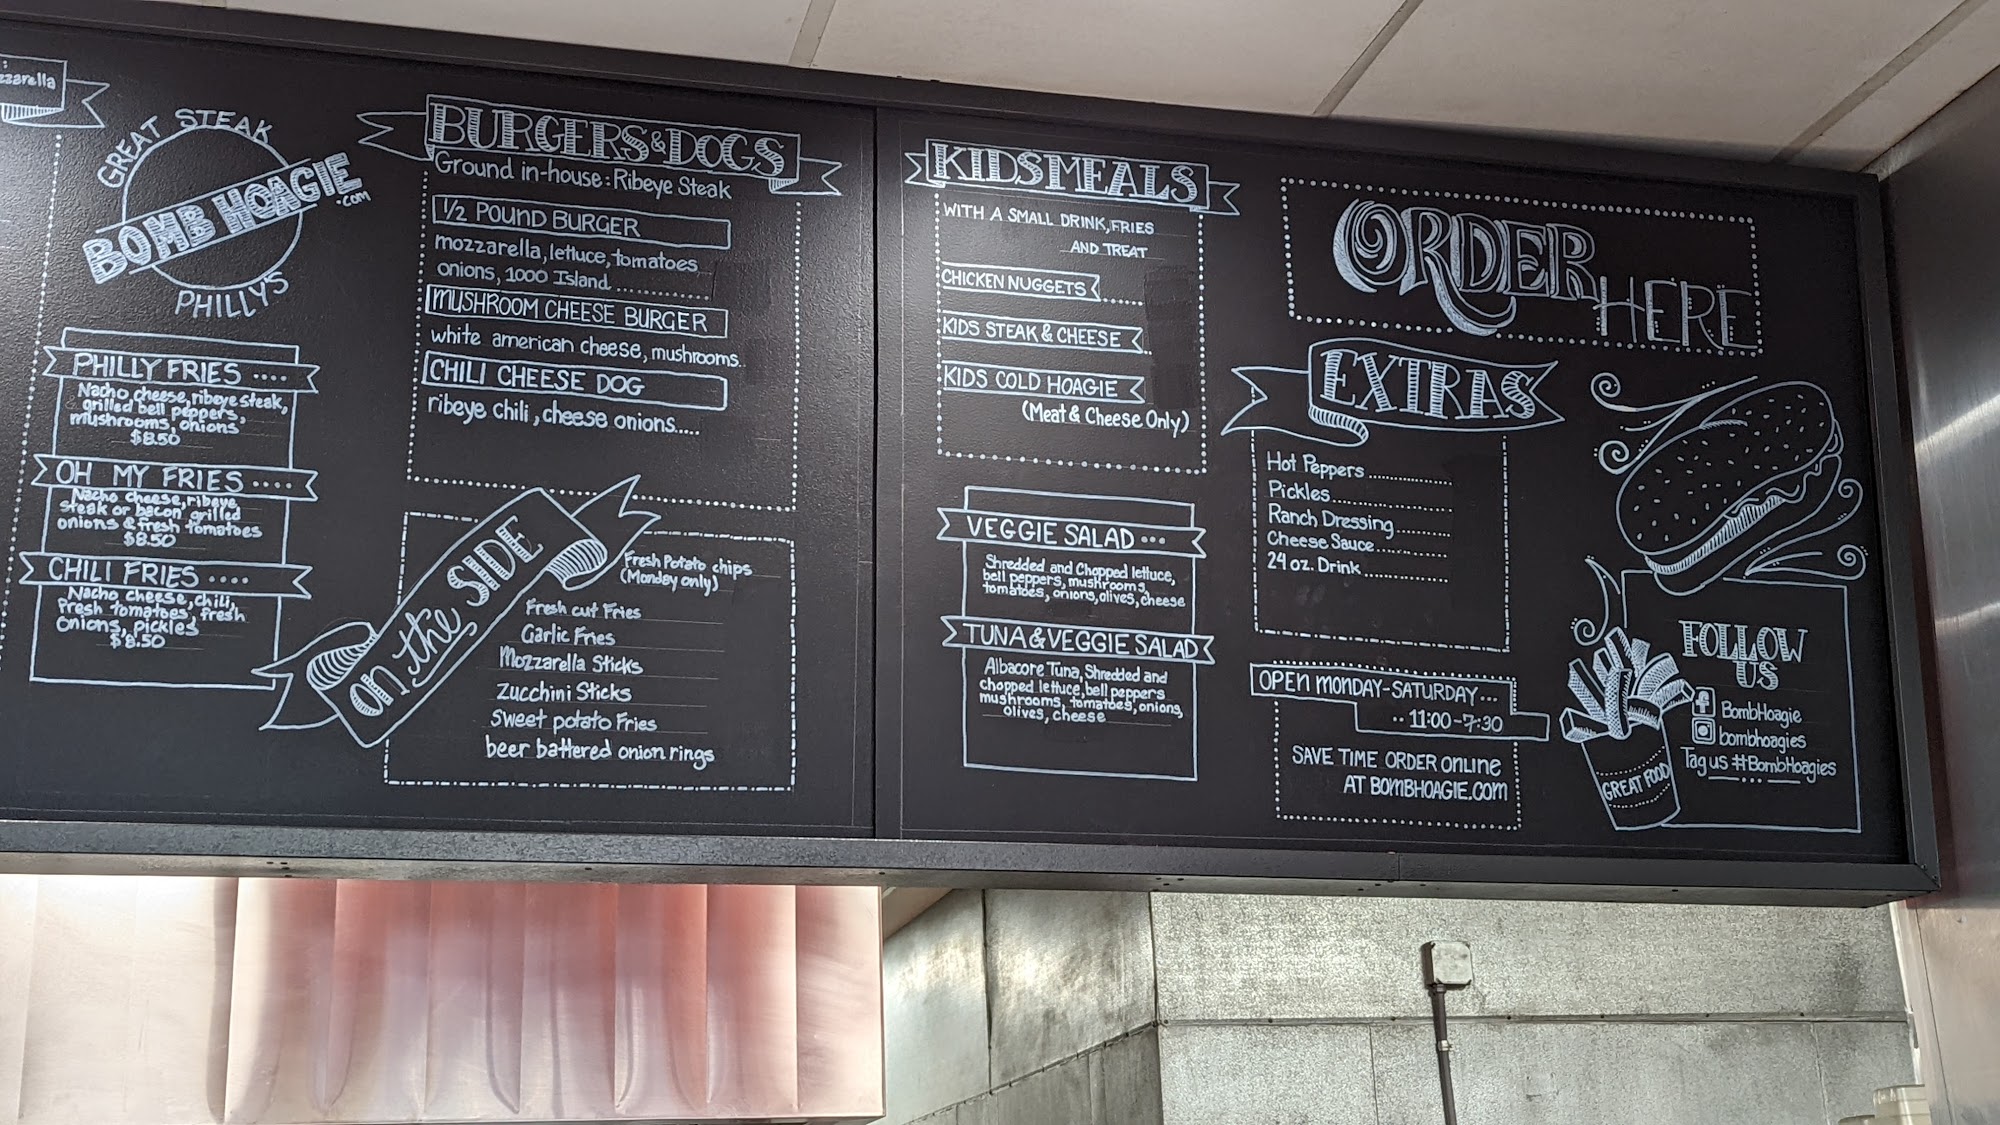 zzarella
GREAT STEAK
BOMB HOAGIE
.com
PHILLYS
PHILLY FRIES ....
Nacho cheese, ribeye steak,
grilled bell peppers,
mushrooms, onions
$8.50
OH MY FRIES .....
Nacho cheese, ribeye
steak or bacon, grilled
onions & fresh tomatoes
$8.50
CHILI FRIES ....
Nacho cheese, chili,
Fresh tomatoes, fresh
onions, pickles
$8.50
BURGERS & DOGS
Ground in-house: Ribeye Steak
1/2 POUND BURGER
mozzarella, lettuce, tomatoes
onions, 1000 Island ............
MUSHROOM CHEESE BURGER
white american cheese, mushrooms..
CHILI CHEESE DOG
ribeye chili, cheese onions.....
on the SIDE
Fresh Potato chips
(Monday only)
Fresh cut Fries
Garlic Fries
Mozzarella Sticks
Zucchini Sticks
Sweet potato Fries
beer battered onion rings
KIDS MEALS
WITH A SMALL DRINK, FRIES
AND TREAT
CHICKEN NUGGETS ......
KIDS STEAK & CHEESE ..
KIDS COLD HOAGIE
(Meat & Cheese Only)
VEGGIE SALAD ...
Shredded and Chopped lettuce,
bell peppers, mushrooms,
tomatoes, onions, olives, cheese
TUNA & VEGGIE SALAD
Albacore Tuna, Shredded and
chopped lettuce, bell peppers
mushrooms, tomatoes, onions,
olives, cheese
ORDER
HERE
EXTRAS
Hot Peppers ..............
Pickles ....................
Ranch Dressing .........
Cheese Sauce ............
24 oz. Drink ..............
OPEN MONDAY-SATURDAY ...
.. 11:00-7:30
SAVE TIME ORDER ONLINE
AT BOMBHOAGIE.COM
GREAT FOOD
FOLLOW
US
f BombHoagie
bombhoagies
Tag us #BombHoagies